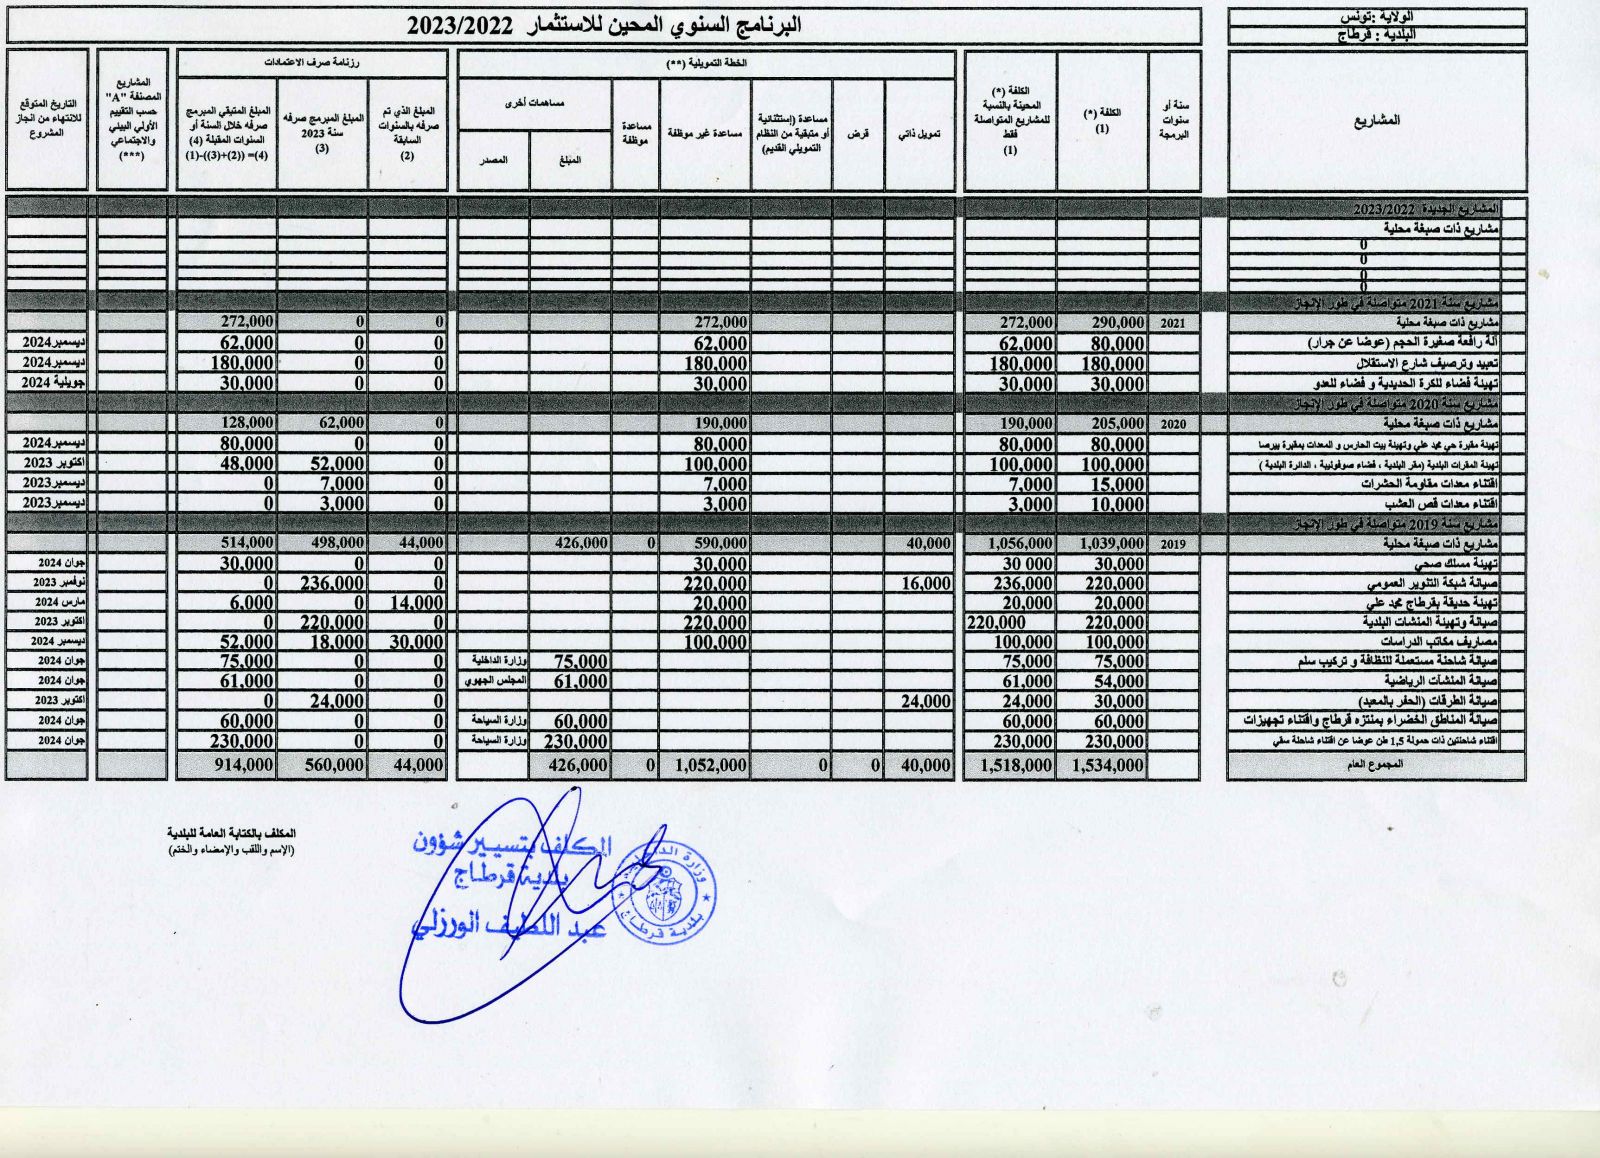 الولاية :تونس
البلدية : قرطاج
البرنامج السنوي المحين للاستثمار 2023/2022
المشاريع
سنة أو سنوات البرمجة
الكلفة (*) (1)
الكلفة (*) المحينة بالنسبة للمشاريع المتواصلة فقط (1)
الخطة التمويلية (**)
تمويل ذاتي
قرض
مساعدة (إستثنائية أو متبقية من النظام التمويلي القديم)
مساعدة غير موظفة
مساعدة موظفة
مساهمات أخرى
المبلغ
المصدر
رزنامة صرف الاعتمادات
المبلغ الذي تم صرفه بالسنوات السابقة (2)
المبلغ المبرمج صرفه سنة 2023 (3)
المبلغ المتبقي المبرمج صرفه خلال السنة أو السنوات المقبلة (4) (4)= ((2)+(3))-(1)
المشاريع المصنفة "A" حسب التقييم الأولي البيئي والاجتماعي (***)
التاريخ المتوقع للانتهاء من انجاز المشروع
المشاريع الجديدة 2023/2022
مشاريع ذات صبغة محلية
0
0
0
0
مشاريع سنة 2021 متواصلة في طور الإنجاز
مشاريع ذات صبغة محلية 2021 290,000 272,000 272,000 0 0 272,000
آلة رافعة صغيرة الحجم (عوضا عن جرار) 80,000 62,000 62,000 0 0 62,000 ديسمبر2024
تعبيد وترصيف شارع الاستقلال 180,000 180,000 180,000 0 0 180,000 ديسمبر2024
تهيئة فضاء للكرة الحديدية و فضاء للعدو 30,000 30,000 30,000 0 0 30,000 جويلية 2024
مشاريع سنة 2020 متواصلة في طور الإنجاز
مشاريع ذات صبغة محلية 2020 205,000 190,000 190,000 0 62,000 128,000
تهيئة مقبرة حي محمد علي وتهيئة بيت الحارس و المعدات بمقبرة بيرصا 80,000 80,000 80,000 0 0 80,000 ديسمبر2024
تهيئة المقرات البلدية (مقر البلدية ، فضاء صوفونيبة ، الدائرة البلدية ) 100,000 100,000 100,000 0 52,000 48,000 اكتوبر 2023
اقتناء معدات مقاومة الحشرات 15,000 7,000 7,000 0 7,000 0 ديسمبر2023
اقتناء معدات قص العشب 10,000 3,000 3,000 0 3,000 0 ديسمبر2023
مشاريع سنة 2019 متواصلة في طور الإنجاز
مشاريع ذات صبغة محلية 2019 1,039,000 1,056,000 40,000 590,000 0 426,000 44,000 498,000 514,000
تهيئة مسلك صحي 30,000 30 000 30,000 0 0 30,000 جوان 2024
صيانة شبكة التنوير العمومي 220,000 236,000 16,000 220,000 0 236,000 0 نوفمبر 2023
تهيئة حديقة بقرطاج محمد علي 20,000 20,000 20,000 14,000 0 6,000 مارس 2024
صيانة وتهيئة المنشات البلدية 220,000 220,000 220,000 0 220,000 0 اكتوبر 2023
مصاريف مكاتب الدراسات 100,000 100,000 100,000 30,000 18,000 52,000 ديسمبر 2024
صيانة شاحنة مستعملة للنظافة و تركيب سلم 75,000 75,000 75,000 وزارة الداخلية 0 0 75,000 جوان 2024
صيانة المنشآت الرياضية 54,000 61,000 61,000 المجلس الجهوي 0 0 61,000 جوان 2024
صيانة الطرقات (الحفر بالمعبد) 30,000 24,000 24,000 0 24,000 0 اكتوبر 2023
صيانة المناطق الخضراء بمنتزه قرطاج واقتناء تجهيزات 60,000 60,000 60,000 وزارة السياحة 0 0 60,000 جوان 2024
اقتناء شاحنتين ذات حمولة 1,5 طن عوضا عن اقتناء شاحنة سقي 230,000 230,000 230,000 وزارة السياحة 0 0 230,000 جوان 2024
المجموع العام 1,534,000 1,518,000 40,000 0 0 1,052,000 0 426,000 44,000 560,000 914,000
المكلف بالكتابة العامة للبلدية
(الإسم واللقب والإمضاء والختم)
المكلف بتسيير شؤون
بلدية قرطاج
عبد اللطيف الورزلي
وزارة الداخلية
بلدية قرطاج